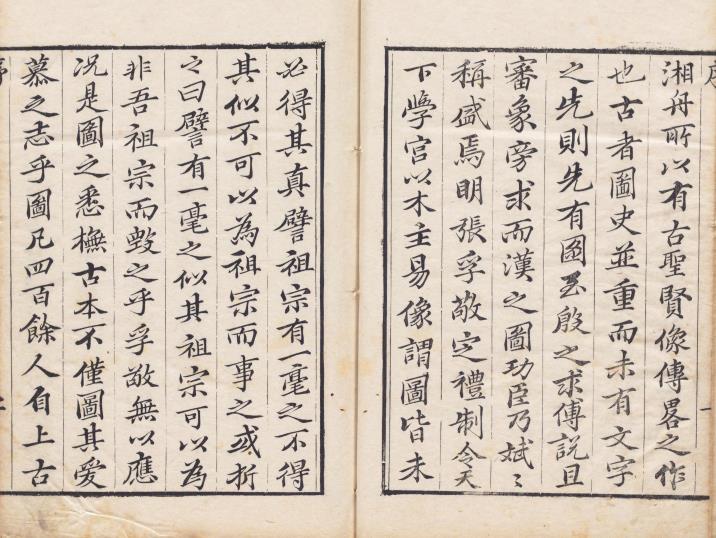 序
湘舟所以有古聖賢像傳畧之作
也古者圖史並重而未有文字
之先則先有圖至殷之求傅說且
審象旁求而漢之圖功臣乃斌〻
稱盛焉明張孚敬定禮制令天
下學宮以木主易像謂圖皆未
必得其真譬祖宗有一毫之不得
其似不可以為祖宗而事之或折
之曰譬有一毫之似其祖宗可以為
非吾祖宗而毀之乎孚敬無以應
况是圖之悉橅古本不僅圖其爱
慕之志乎圖凡四百餘人自上古